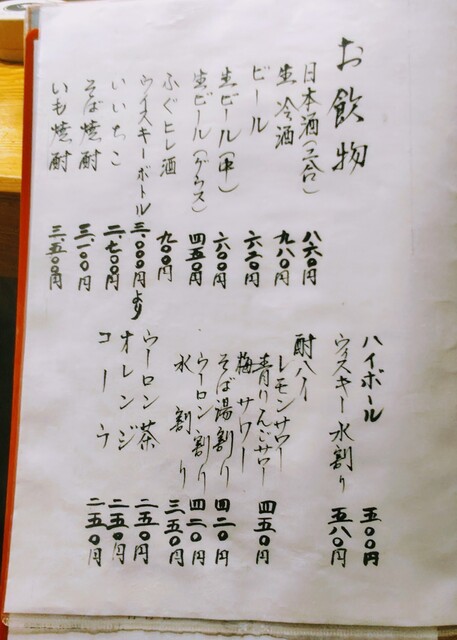 お飲物
日本酒(三合) 八六〇円
生冷酒 九八〇円
ビール 六二〇円
生ビール(中) 六〇〇円
生ビール(グラス) 四五〇円
ふぐヒレ酒 九〇〇円
ウイスキーボトル 三、〇〇〇円より
いいちこ 二、七〇〇円
そば焼酎 三、一〇〇円
いも焼酎 三、五〇〇円
ハイボール 五〇〇円
ウィスキー水割り 五八〇円
酎ハイ
レモンサワー
青りんごサワー 四五〇円
梅サワー
そば湯割り 四二〇円
ウーロン割り 四二〇円
水割り 三五〇円
ウーロン茶 二五〇円
オレンジ 二五〇円
コーラ 二五〇円